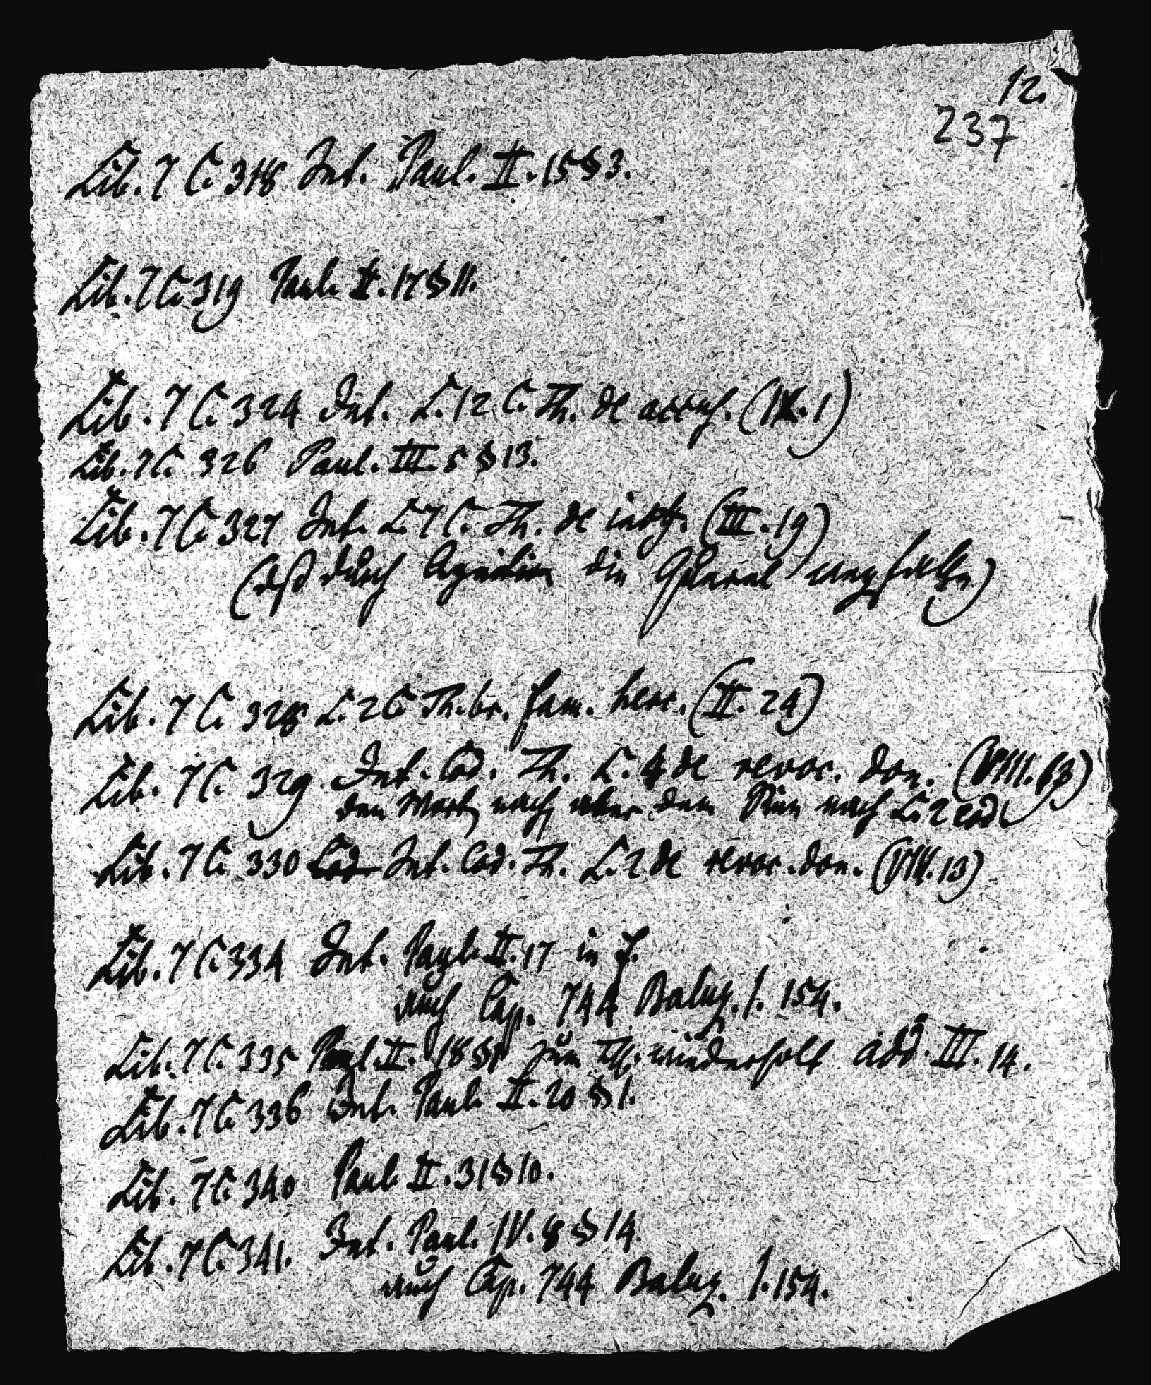 12.
237
Lib. 7 C. 318 Int. Paul. II. 15 § 3.
Lib. 7 C. 319 Paul. II. 17 § 11.
Lib. 7 C. 324 Int. L. 12 C. Th. de accus. (IX. 1)
Lib. 7 C. 326 Paul. III. 5 § 13.
Lib. 7 C. 327 Int. L 7 C. Th. de (III. 19)
(Ist durch die)
Lib. 7 C. 328 L. 2 C Th. br. fam. herc. (II. 24)
Lib. 7 C. 329. Int. Cod. Th. L. 4 de revoc. don. (VIII. 13)
den Worten nach aber dem Sinn nach L. 2 eod.
Lib. 7 C. 330 Cod Int. Cod. Th. L. 2 de revoc. don. (VIII. 13)
Lib. 7 C 334 Int. Paul. II. 17 in f.
auch Cap. 744 Baluz. 1. 154.
Lib. 7 C. 335 Paul II. 18 § 1 zum Th. wiederholt add. III. 14.
Lib. 7 C. 336 Int. Paul. II. 20 § 1.
Lib. 7 C. 340 Paul II. 31 § 10.
Lib. 7 C. 341. Int. Paul. IV. 8 § 14.
auch Cap. 744 Baluz. 1. 154.